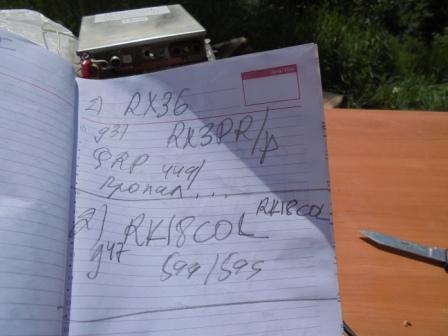 1) RX3G
931 RK3PR/p
QRP 449/
пропал...
2) RK18COL RK18COL
947 599/595